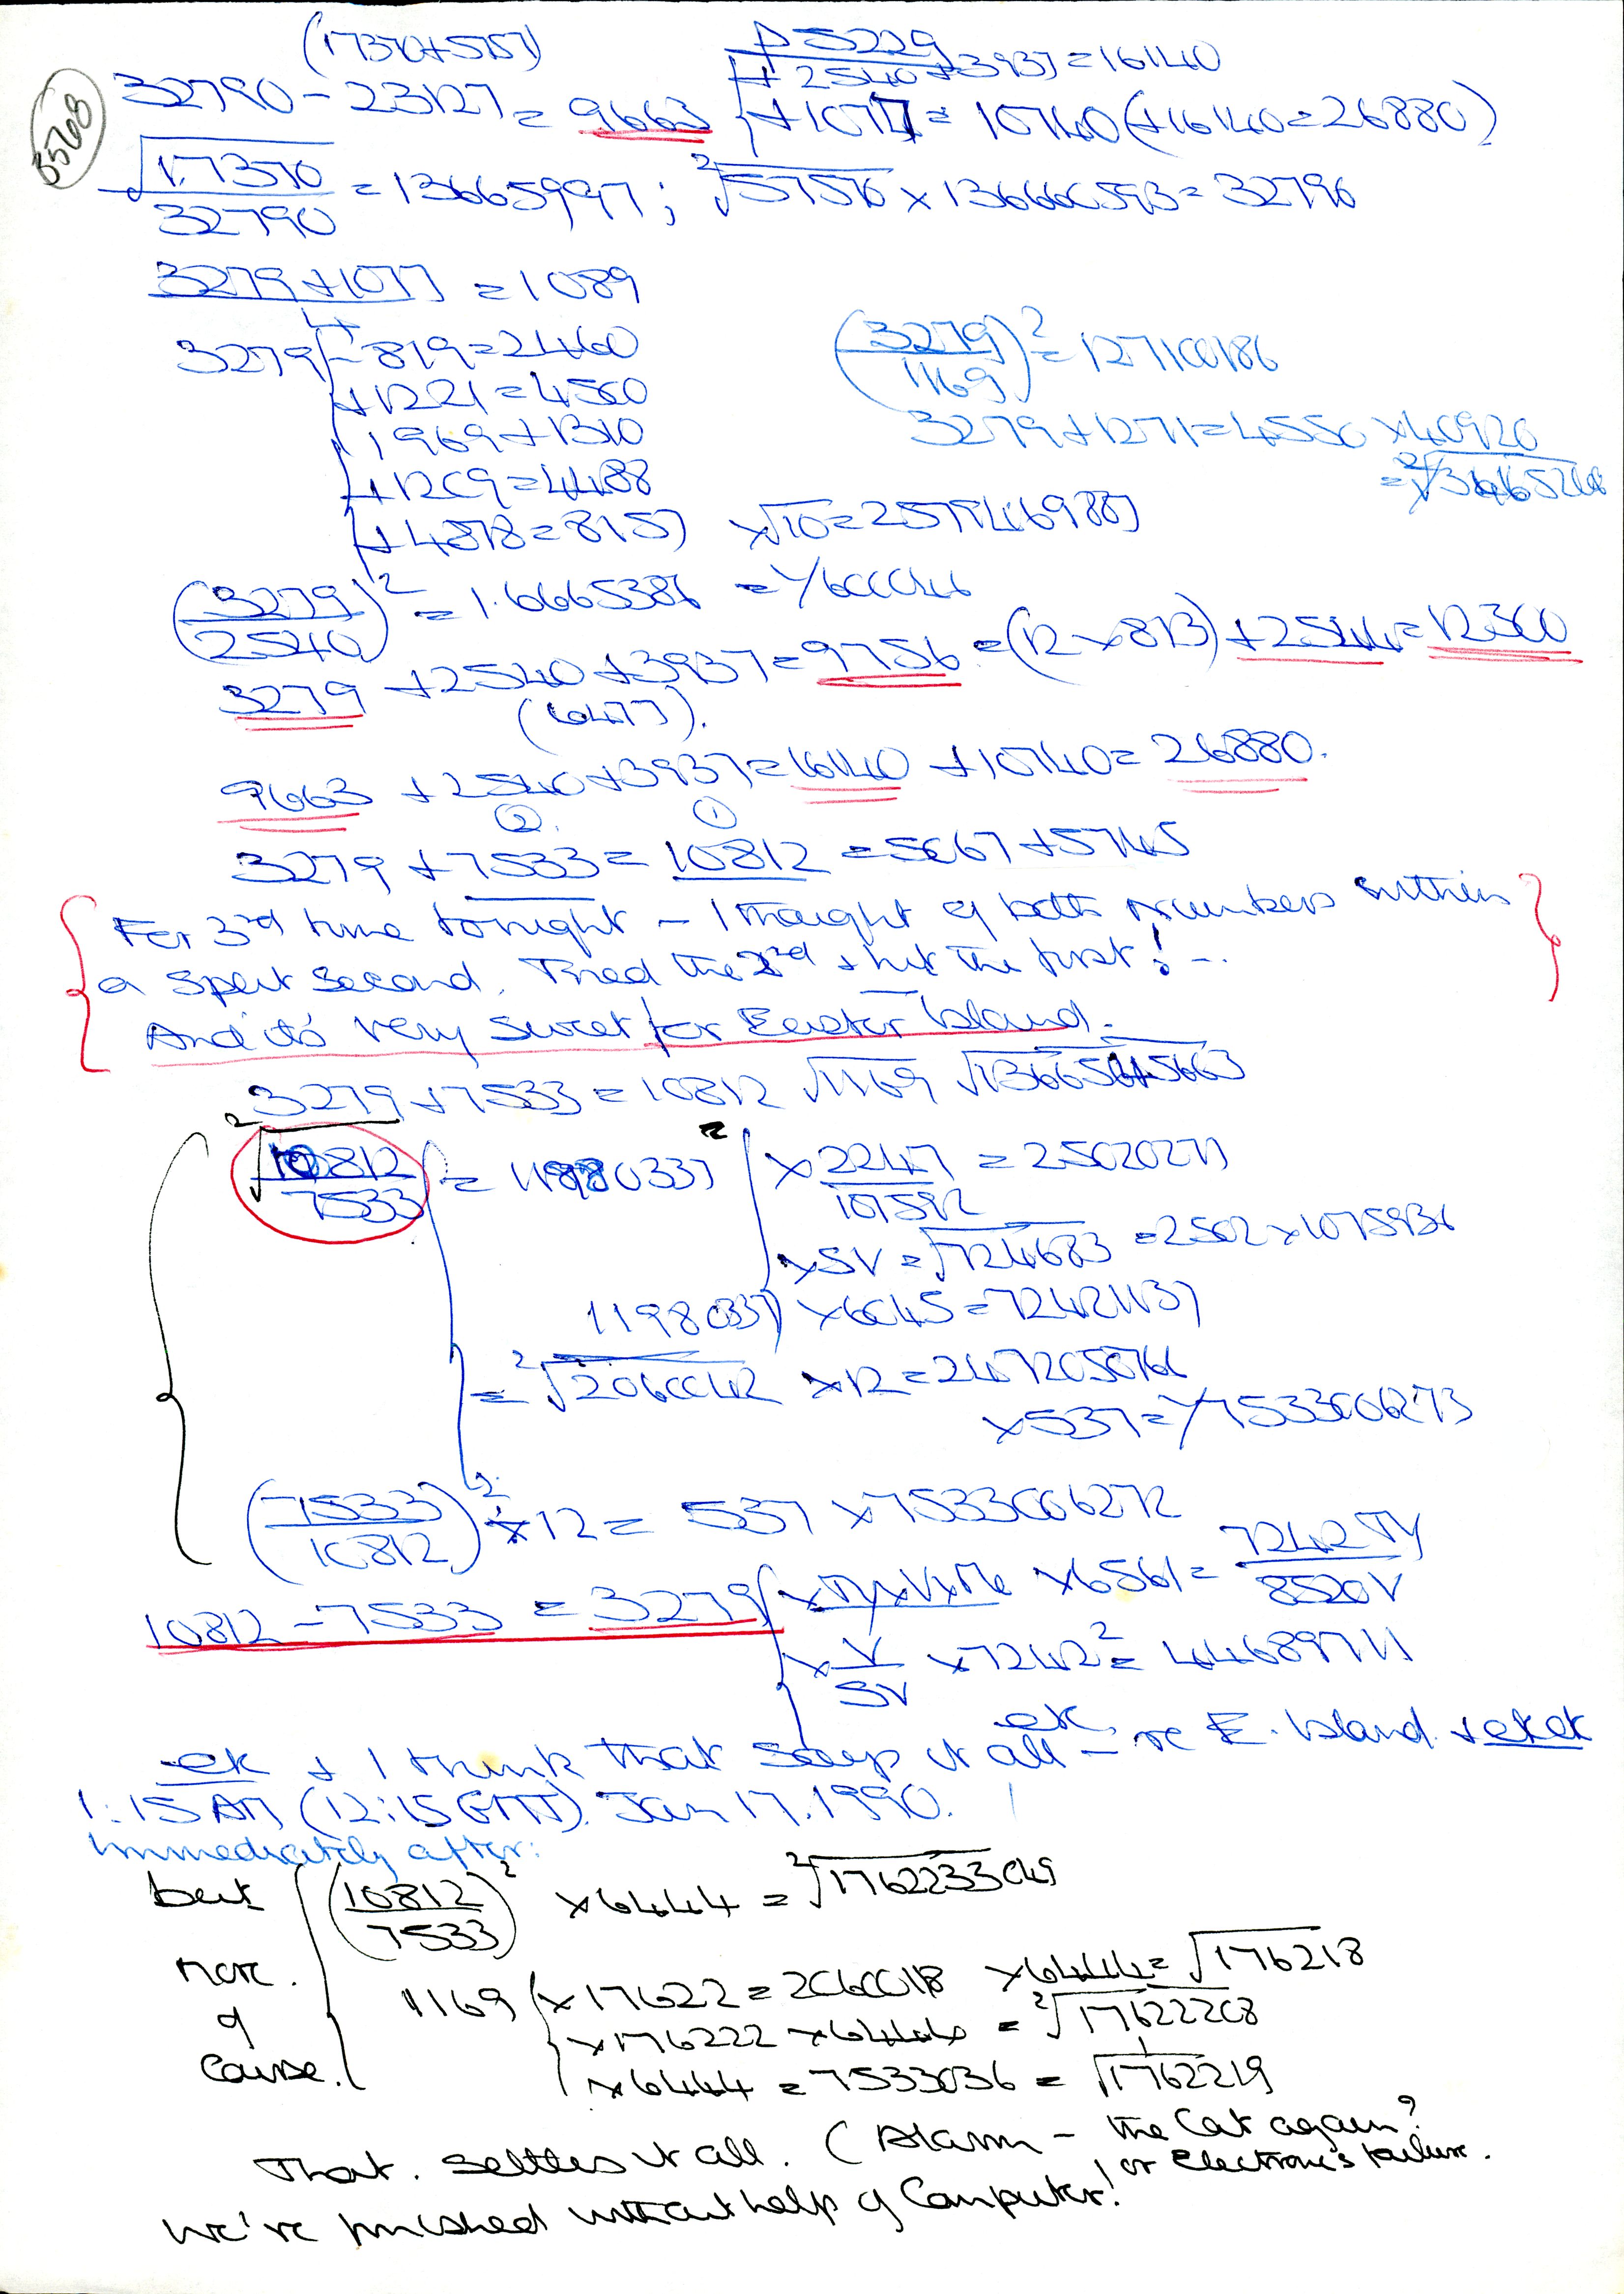 35768
(17370+5757)
32790 - 23127 = 9663
+ 2540 + 3937 = 16140
+ 1077 = 10740 (+16140 = 26880)
√17370/32790 = 13665997 ; ²√57576 × 136666593 = 32796
3279 + 1077 = 1089
3279 - 819 = 2460
+ 1221 = 4500
1969 + 1310
+ 1209 = 4488
+ 4878 = 8157 × √10 =
(3279/1169)² =
3279 + 1271 = 4550 × 40920
(3279/2540)² = 1.6665386
3279 + 2540 + 3937 = 9756 = (12 × 813) + 2544 = 12300
(6477).
9663 + 2540 + 3937 = 16140 + 10740 = 26880.
② ①
3279 + 7533 = 10812 = 5067 + 5745
For 3rd time tonight - I thought of both numbers within
a split second. Tried the 2nd & hit the first! -
And it's very sweet for Easter Island.
3279 + 7533 = 10812 √1169
²√10812/7533 = 11980337 × 2247/107592 = 25020271
× SV = √724683 = 2502 × 1075936
11980337 × 6045 = 72421137
= ²√2060042 × 12 = 2472050766
× 537 = 1/7533006273
(7533/10812)² × 12 = 537 × 7533006272
10812 - 7533 = 3279 × 6561 = 7242 /8520V
× V/SV × 7242² = 44689711
ek & I think that sews it all - re E. Island & ekek
ek
1:15 AM (12:15 GMT). Jan 17. 1990.
Immediately after:
but more of course.
(10812/7533)² × 6444 = ²√1762233049
1169 × 17622 = 2060018 × 6444 = √176218
× 176222 × 6444 = ²√17622208
× 6444 = 7533036 = √1762219
That. settles it all. (Alarm - the Cat again?
or Electronics failure.
We're finished without help of Computer!